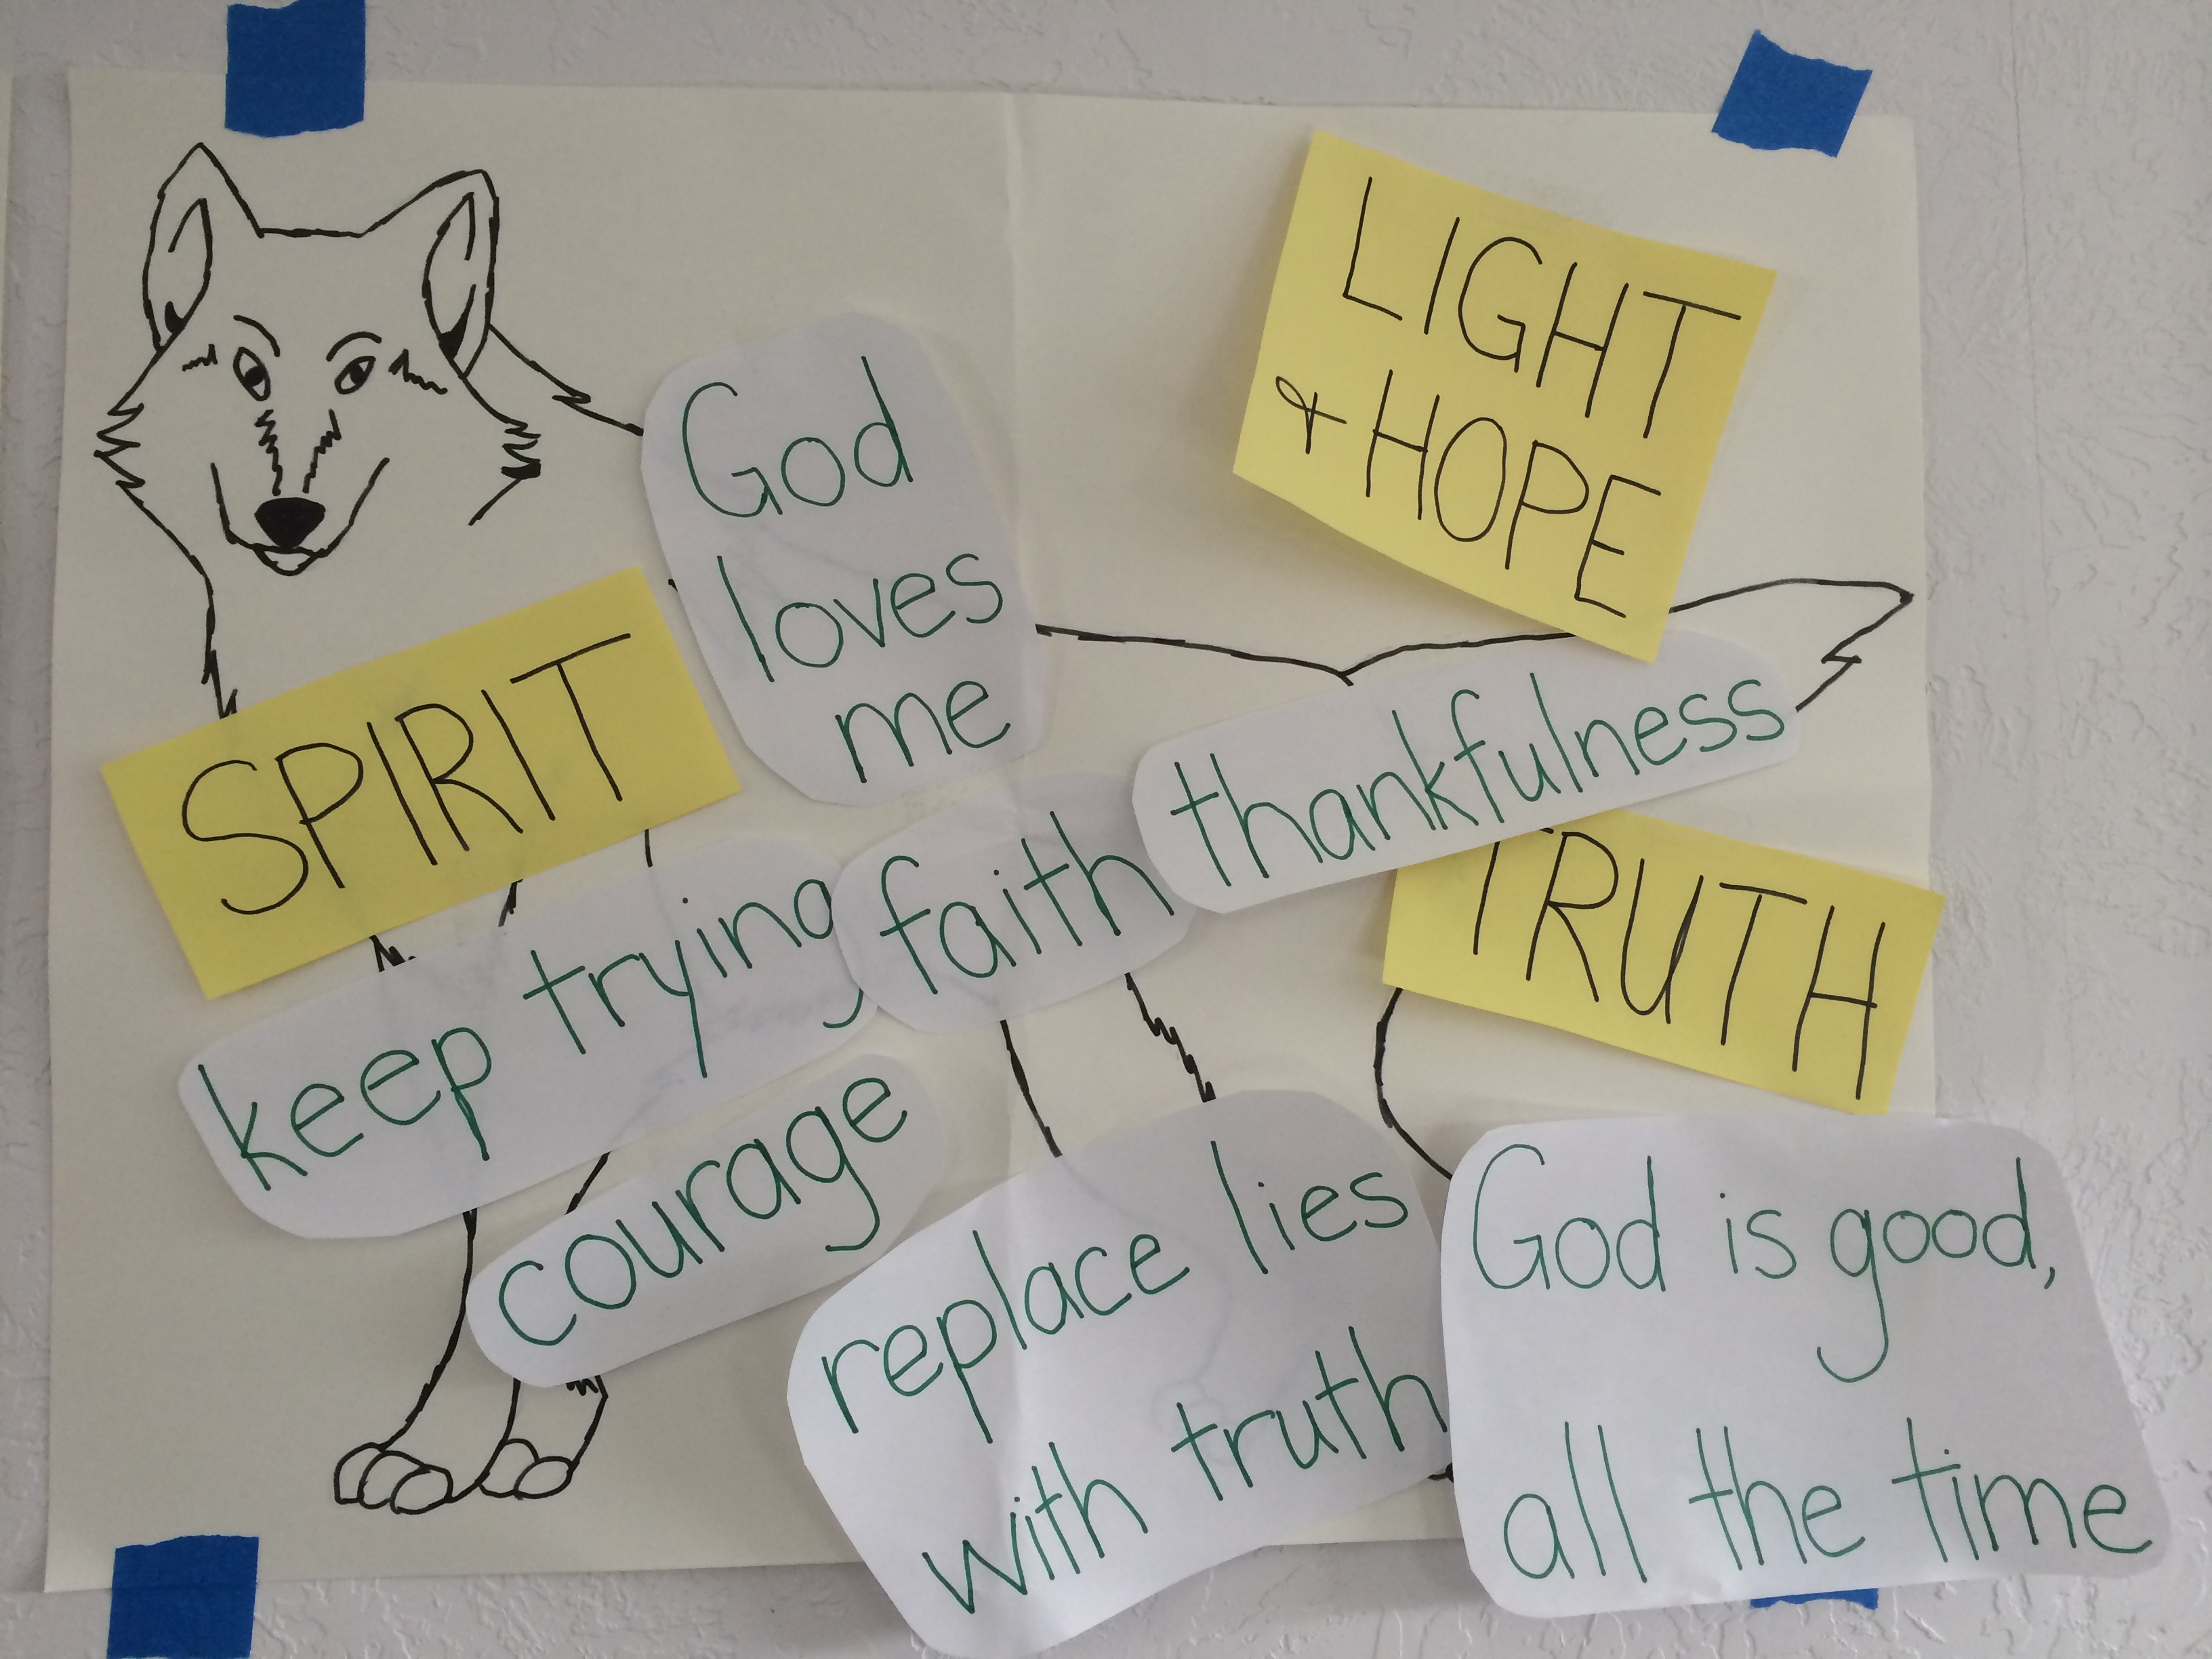 LIGHT
+ HOPE
God
loves
me
SPIRIT
thankfulness
faith
keep trying
TRUTH
courage
replace lies
with truth
God is good,
all the time